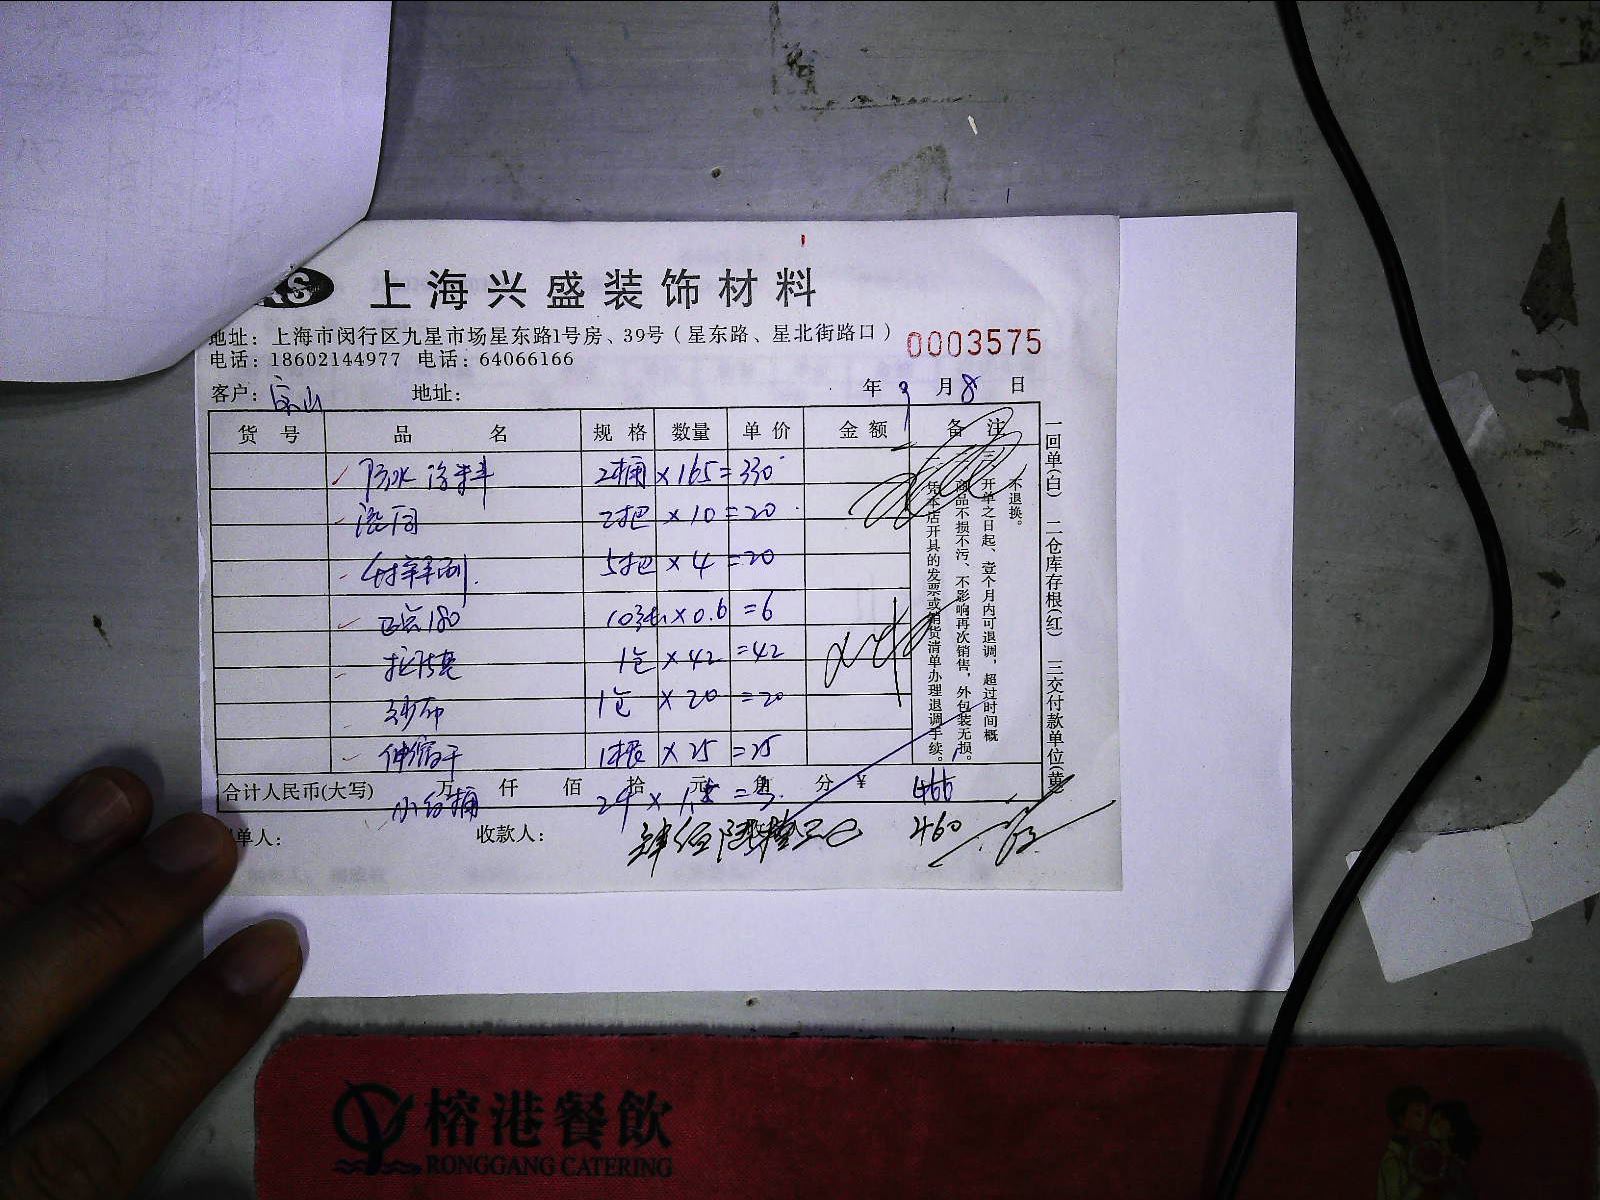 上海兴盛装饰材料
地址：上海市闵行区九星市场星东路1号房、39号（星东路、星北街路口）
0003575
电话：18602144977 电话：64066166
客户：宝山 地址： 年 9 月 8 日
货号 品名 规格 数量 单价 金额 备注
防水涂料 2桶 × 165 = 330
滚同 2把 × 10 = 20
5把 × 4 = 20
180 10张 × 0.6 = 6
1包 × 42 = 42
纱布 1包 × 20 = 20
伸缩干 1根 × 25 = 25
合计人民币(大写) 万 仟 佰 拾 元 角 分 ￥ 466
小白桶 2个 × 1.5 = 3.
单人： 收款人： 肆佰陆拾元 460
凭本店开具的发票或销货清单办理退调手续。
商品不损不污、不影响再次销售，外包装无损。
开单之日起、壹个月内可退调，超过时间概
不退换。
一回单(白) 二仓库存根(红) 三交付款单位(黄)
榕港餐飲
RONGGANG CATERING